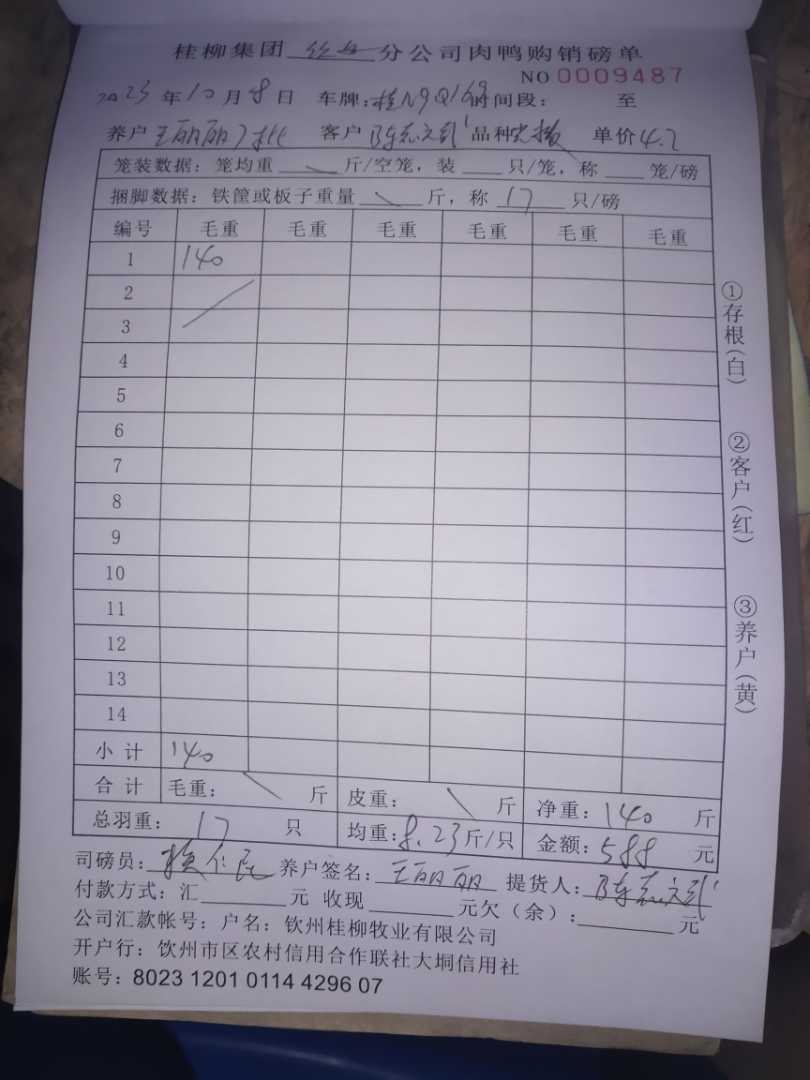 桂柳集团 分公司肉鸭购销磅单
NO 0009487
2023年10月8日 车牌:桂N9Q169 时间段: 至
养户 王丽丽 客户 陈志 品种 单价4.2
笼装数据:笼均重 斤/空笼,装 只/笼,称 笼/磅
捆脚数据:铁筐或板子重量 斤,称 17 只/磅
编号 毛重 毛重 毛重 毛重 毛重 毛重
1 140
2
3
4
5
6
7
8
9
10
11
12
13
14
小计 140
合计 毛重: 斤 皮重: 斤 净重:140 斤
总羽重: 17 只 均重:8.23斤/只 金额:588 元
司磅员: 养户签名:王丽丽 提货人:陈志
付款方式:汇 元 收现 元欠(余): 元
公司汇款帐号:户名:钦州桂柳牧业有限公司
开户行:钦州市区农村信用合作联社大垌信用社
账号:8023 1201 0114 4296 07
①存根(白)
②客户(红)
③养户(黄)